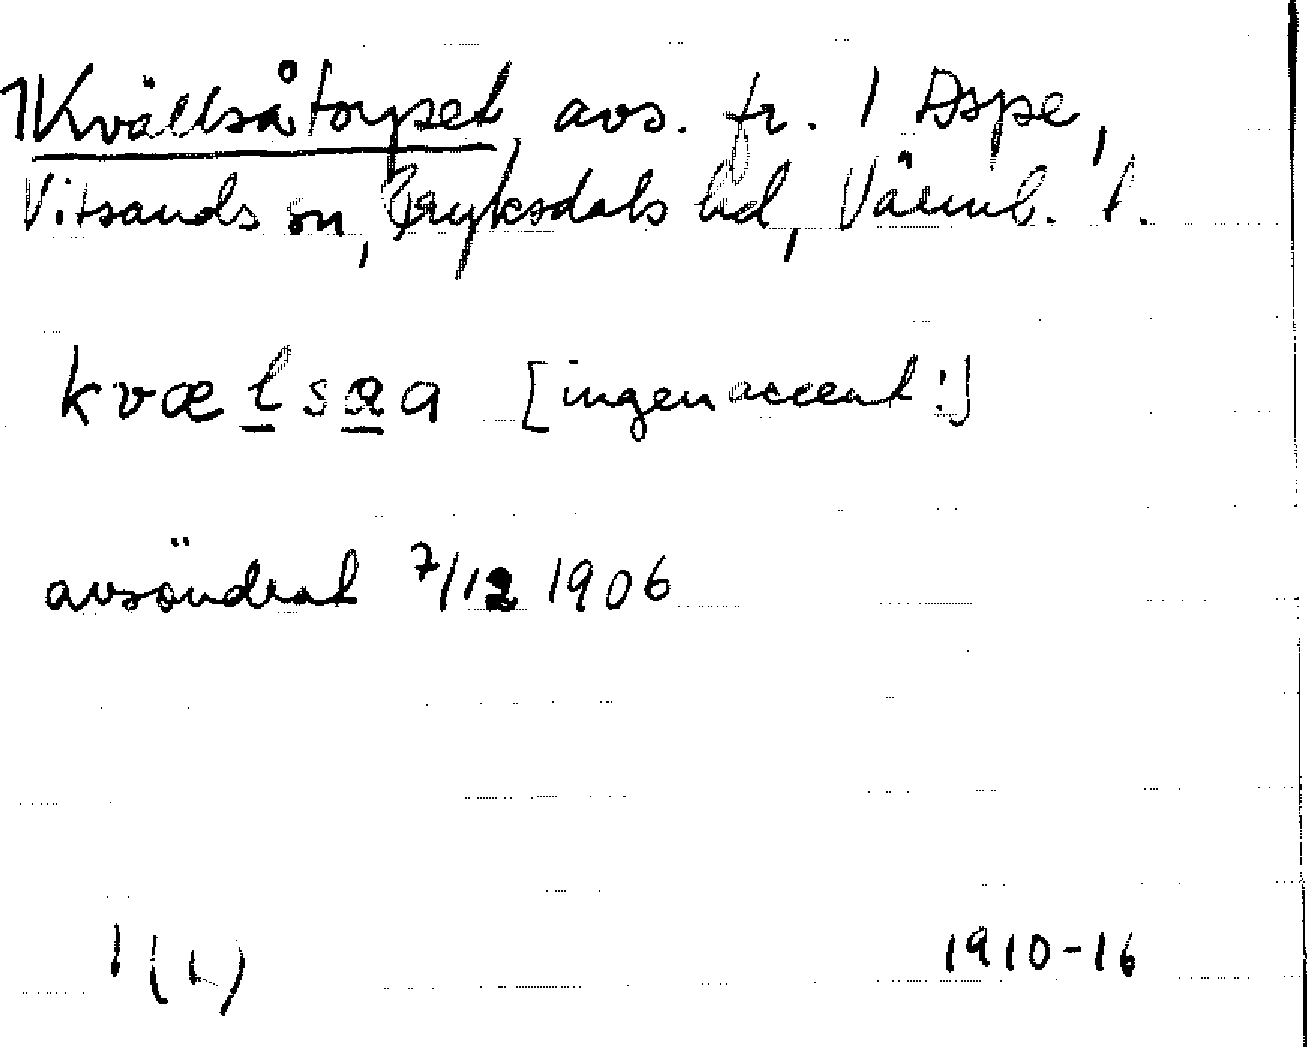 1Kvällsåtorpet, avs. fr. 1 Aspe,
Vitsands sn, Fryksdals hd, Värml. l.
kvælsaa [ingen accent!]
avsöndrat 7/12 1906
1(L) 1910-16